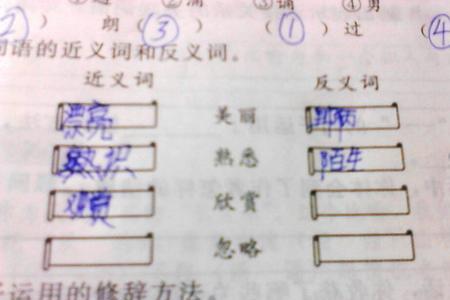 ② ) 朗 ( ③ ) ( ① ) 过 ( ④
语的近义词和反义词。
近义词 反义词
漂亮 美丽
熟识 熟悉 陌生
观赏 欣赏
忽略
运用的修辞方法。